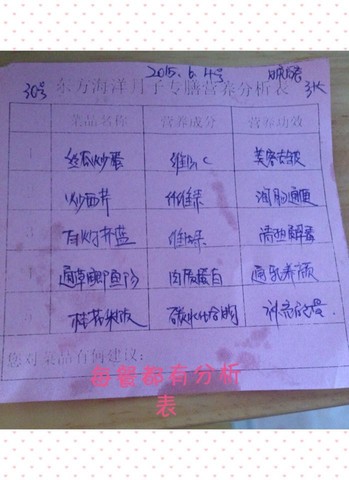 2015.6.4号
30号 东方海洋月子专膳营养分析表
菜品名称 营养成分 营养功效
1 丝瓜炒蛋 C 美容去皱
2 炒西芹 纤维素 润肠通便
3 白灼芥蓝 清热解毒
4 通草鲫鱼汤 蛋白 通乳养颜
5 米饭 碳水化合物
您对菜品有何建议：
每餐都有分析
表